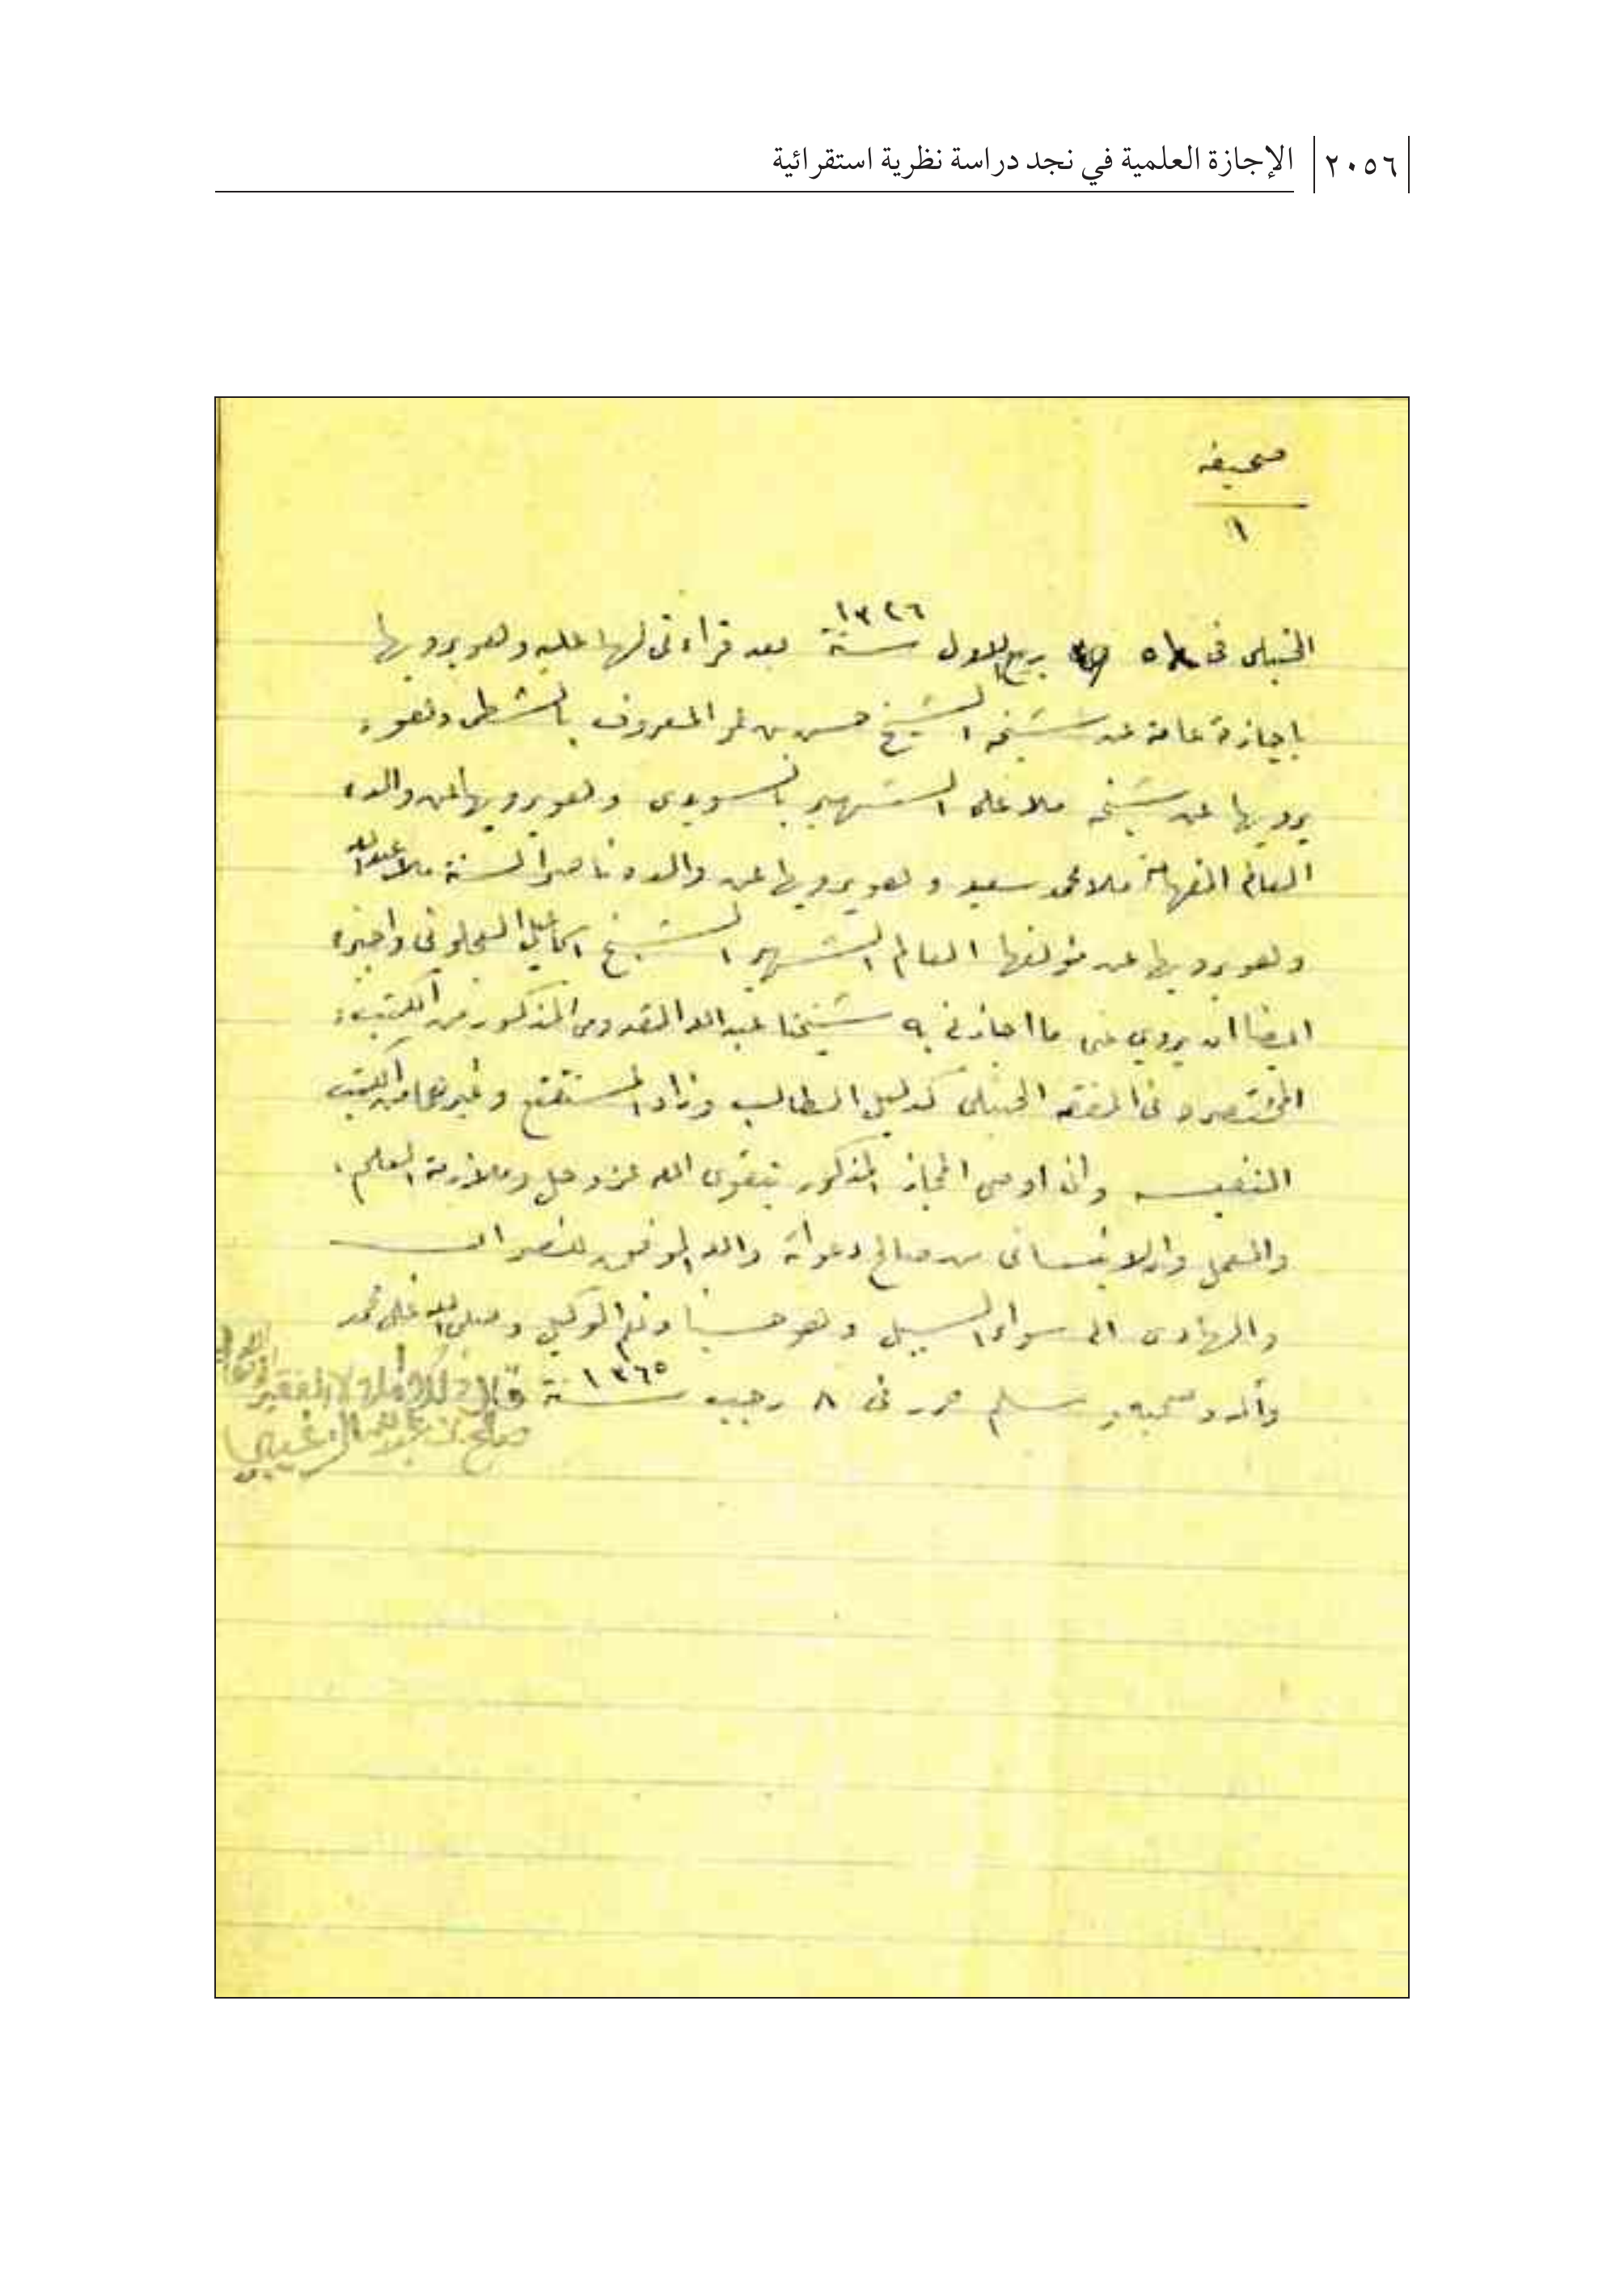 ٢٠٥٦ الإجازة العلمية في نجد دراسة نظرية استقرائية
صحيفه
١
الحنبلى فى ٥ ربيع الاول سنة ١٣٢٦ بعد قراءتى لها عليه وهو يرويها
باجازة عامة عن شيخه الشيخ حسن بن عمر المعروف بالشطى وهو
يرويها عن شيخه ملا على الشهير بالسويدى وهو يرويها عن والده
العالم الفهامة ملا محمد سعيد وهو يرويها عن والده ناصر السنة ملا عبدالله
وهو يرويها عن مؤلفها العالم الشهير الشيخ اسماعيل العجلونى واجيزه
ايضا ان يروي عنى ما اجازنى به شيخنا عبدالله القدومى المذكور من الكتب
المختصره فى الفقه الحنبلى كدليل الطالب وزاد المستقنع وغيرهما من الكتب
النفيسه وانى اوصى المجاز المذكور بتقوى الله عز وجل وملازمة العلم
والعمل وان لا ينسانى من صالح دعواته والله الموفق للصواب
والهادى الى سواء السبيل وهو حسبنا ونعم الوكيل وصلى الله على محمد
وآله وصحبه وسلم حرر فى ٨ رجب سنة ١٣٦٥ قال ذلك وأملاه الفقير
صالح بن عبدالله الزغيبي